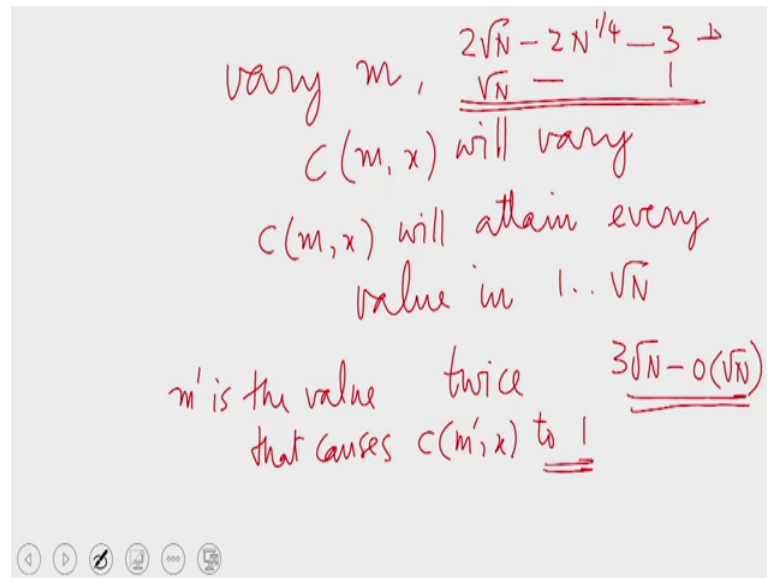 2√N - 2N^1/4 - 3
vary m, √N - 1
C(m, x) will vary
C(m, x) will attain every
value in 1..√N
m' is the value twice 3√N - o(√N)
that causes C(m', x) to 1